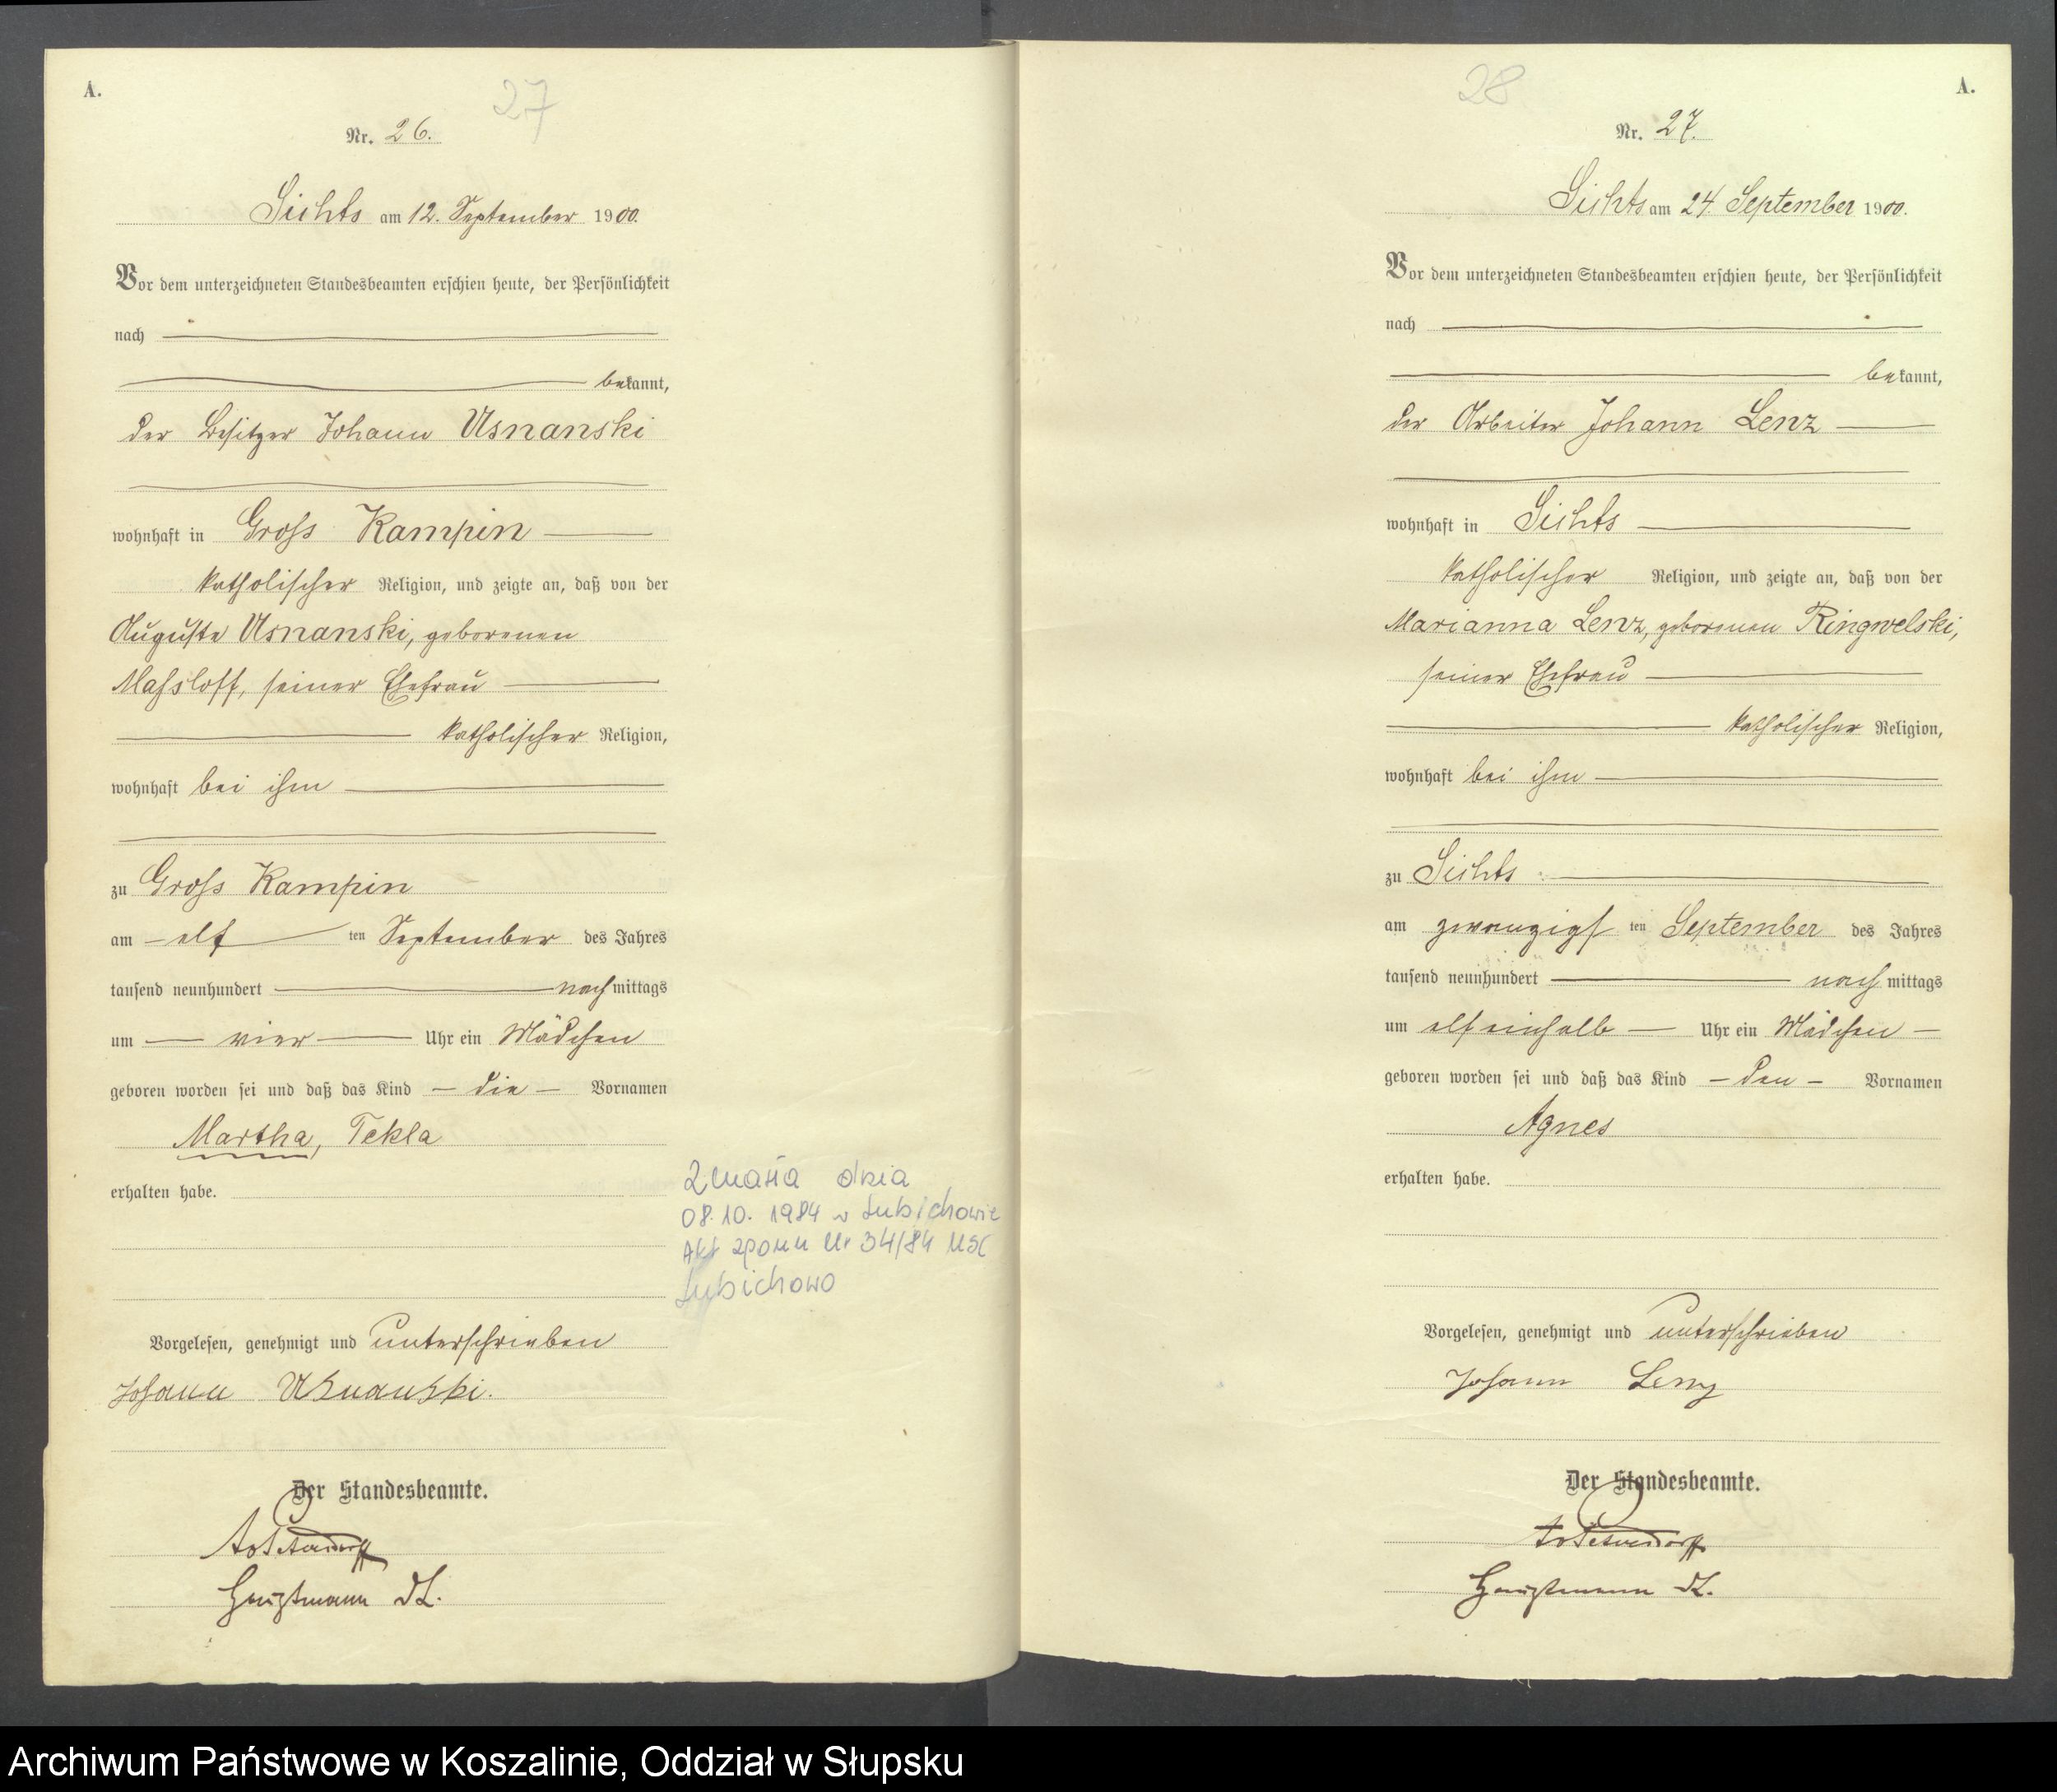 A.
27
Nr. 26.
Sichts am 12. September 1900.
Vor dem unterzeichneten Standesbeamten erschien heute, der Persönlichkeit
nach
bekannt,
der Besitzer Johann Usnanski
wohnhaft in Groß Kampin
katholischer Religion, und zeigte an, daß von der
Auguste Usnanski, geborenen
Maßloff, seiner Ehefrau
katholischer Religion,
wohnhaft bei ihm
zu Groß Kampin
am elf ten September des Jahres
tausend neunhundert nachmittags
um vier Uhr ein Mädchen
geboren worden sei und daß das Kind die Vornamen
Martha, Tekla
erhalten habe.
Zmarła dnia
08.10. 1984 w Lubichowie
Akt zgonu Nr 34/84 USC
Lubichowo
Vorgelesen, genehmigt und unterschrieben
Johann Usnanski.
Der Standesbeamte.
Hauptmann dL.
28
A.
Nr. 27.
Sichts am 24. September 1900.
Vor dem unterzeichneten Standesbeamten erschien heute, der Persönlichkeit
nach
bekannt,
der Arbeiter Johann Lenz
wohnhaft in Sichts
katholischer Religion, und zeigte an, daß von der
Marianna Lenz, geborenen Ringwelski,
seiner Ehefrau
katholischer Religion,
wohnhaft bei ihm
zu Sichts
am zwanzigs ten September des Jahres
tausend neunhundert nachmittags
um elfeinhalb Uhr ein Mädchen
geboren worden sei und daß das Kind den Vornamen
Agnes
erhalten habe.
Vorgelesen, genehmigt und unterschrieben
Johann Lenz
Der Standesbeamte.
Hauptmann dL.
Archiwum Państwowe w Koszalinie, Oddział w Słupsku